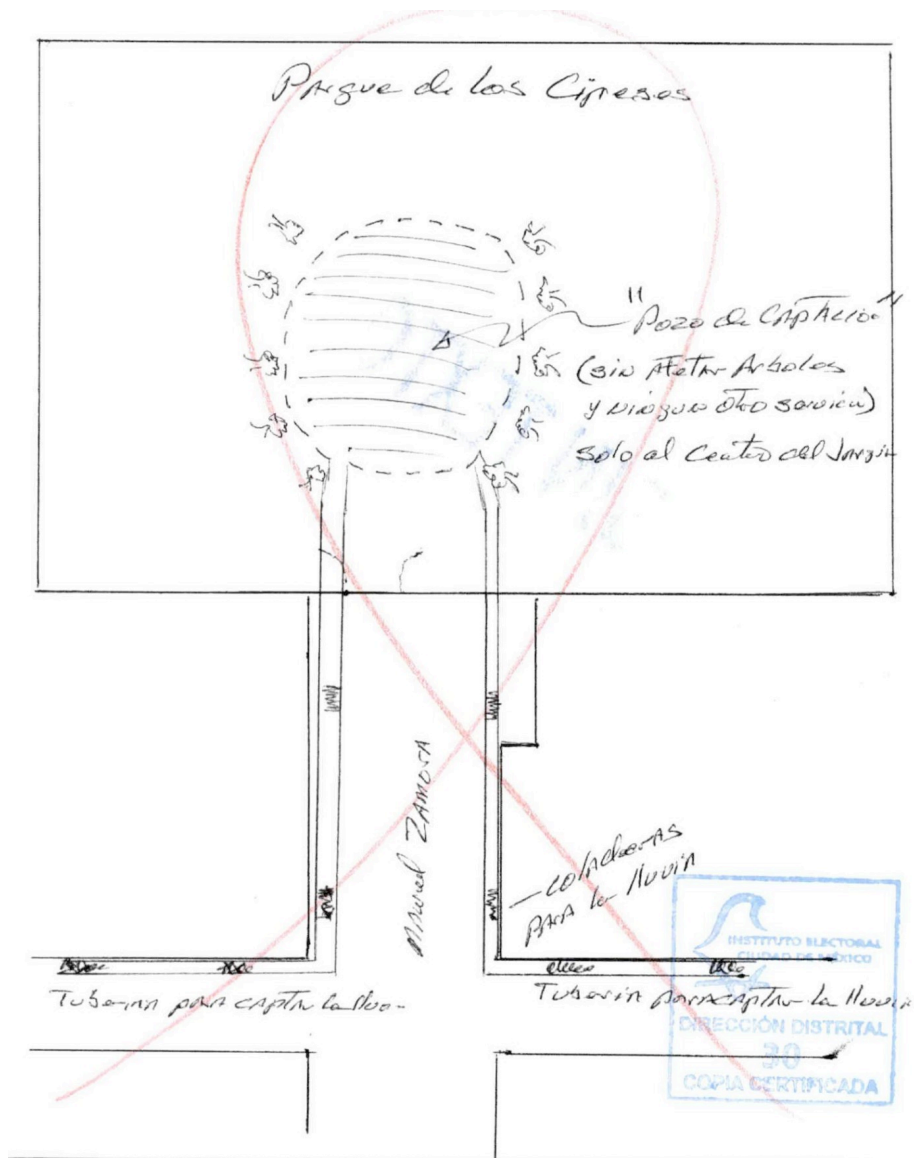 Parque de los Cipreses
"Pozo de CAPTACIóN"
(sin Afetar Arboles
y ninguno otro servicio)
solo al Centro del Jardin
Manuel ZAMORA
coladeras
PARA la lluvia
Tuberia para captar la lluvia
INSTITUTO ELECTORAL
CIUDAD DE MÉXICO
DIRECCIÓN DISTRITAL
30
COPIA CERTIFICADA